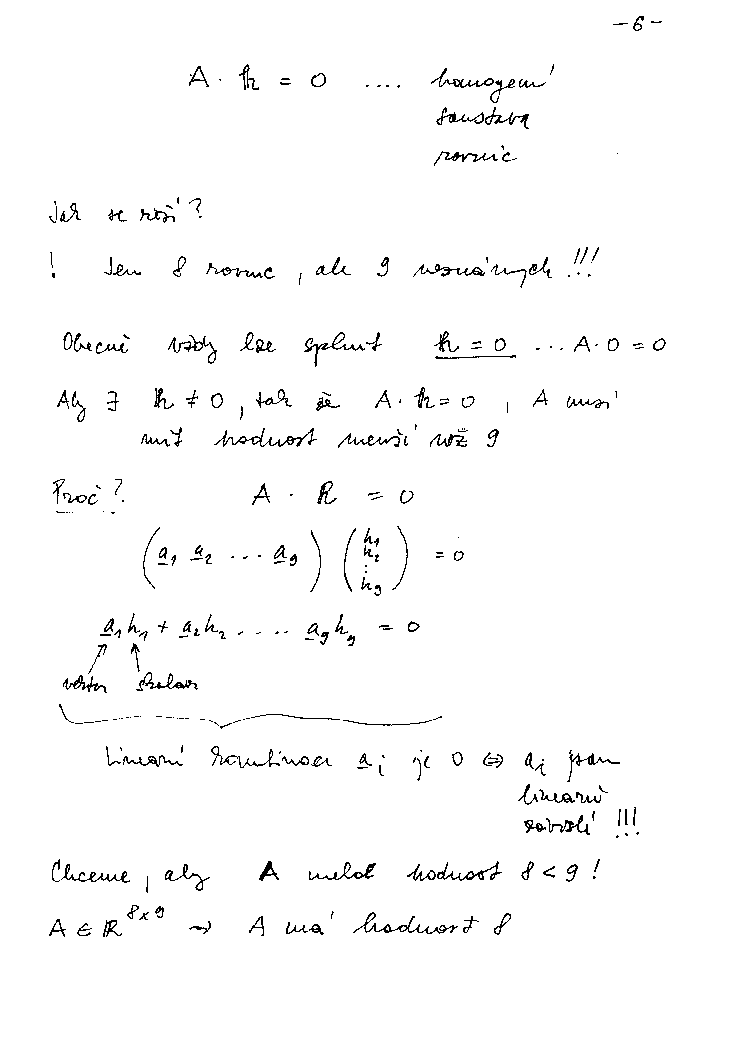 -6-
A · h = 0 .... homogenní
soustava
rovnic
Jak se řeší?
! Jen 8 rovnic, ale 9 neznámých !!!
Obecně vždy lze splnit h = 0 ... A·0 = 0
Aby ∃ h ≠ 0, tak že A · h = 0, A musí
mít hodnost menší než 9
Proč? A · h = 0
(a₁ a₂ ... a₉) (h₁ h₂ ⋮ h₉) = 0
a₁h₁ + a₂h₂ .... a₉h₉ = 0
vektor skalar
Lineární kombinace aᵢ je 0 ⇔ aᵢ jsou
lineárně
závislé !!!
Chceme, aby A měla hodnost 8 < 9 !
A ∈ ℝ⁸ˣ⁹ → A má hodnost 8